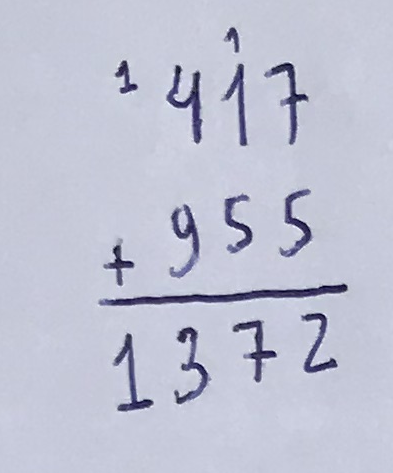 1 1
417
+ 955
1372